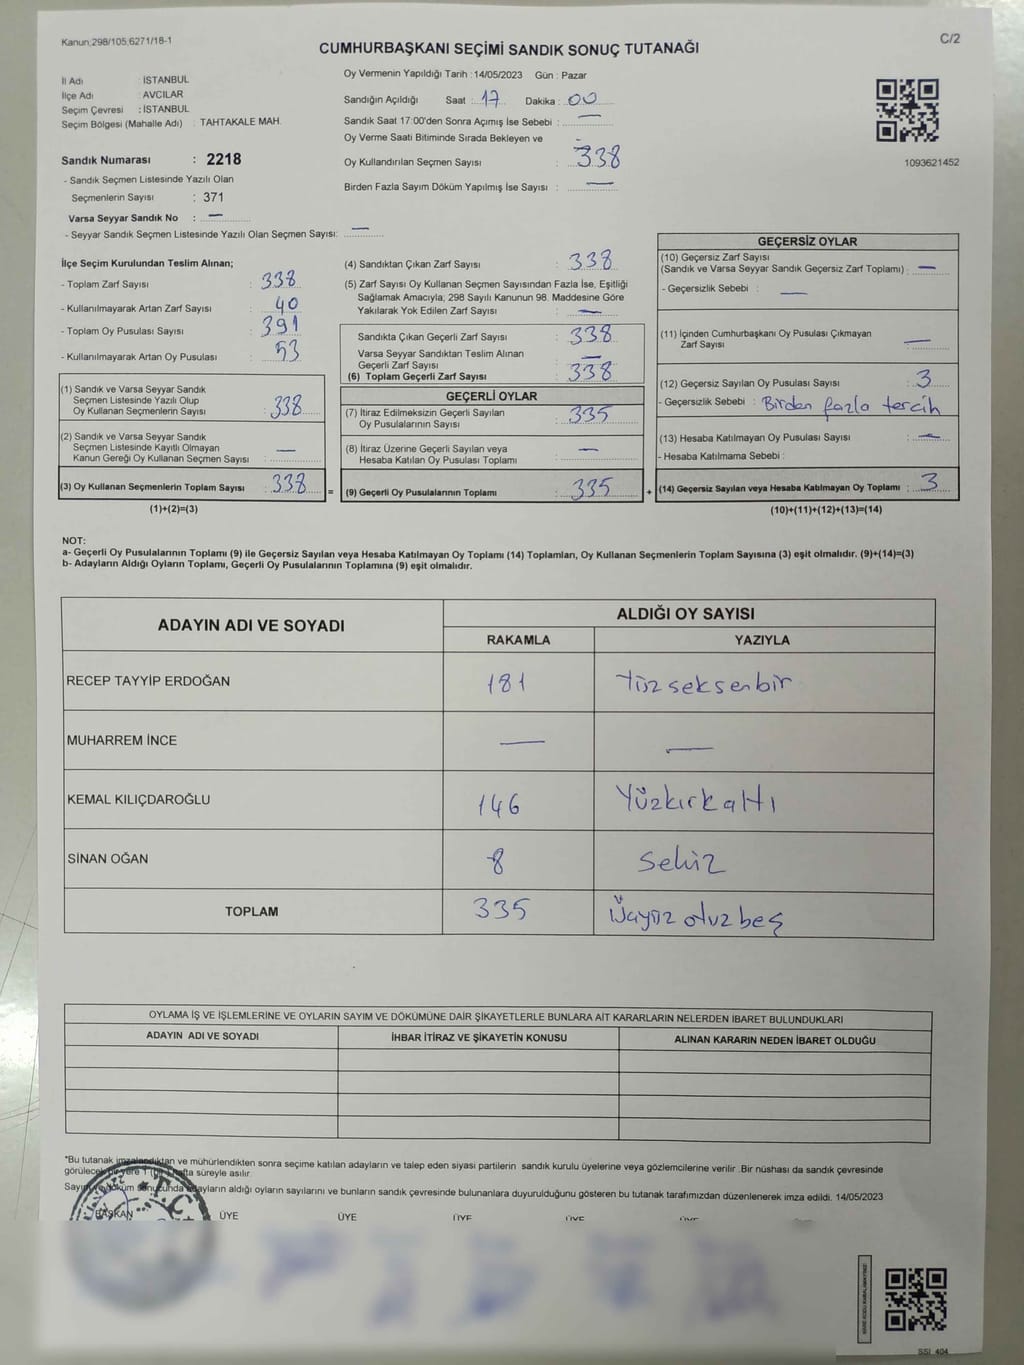 Kanun;298/105;6271/18-1
C/2
CUMHURBAŞKANI SEÇİMİ SANDIK SONUÇ TUTANAĞI
İl Adı : İSTANBUL
İlçe Adı : AVCILAR
Seçim Çevresi : İSTANBUL
Seçim Bölgesi (Mahalle Adı) : TAHTAKALE MAH.
Sandık Numarası : 2218
- Sandık Seçmen Listesinde Yazılı Olan
Seçmenlerin Sayısı : 371
Varsa Seyyar Sandık No : —
- Seyyar Sandık Seçmen Listesinde Yazılı Olan Seçmen Sayısı: —
Oy Vermenin Yapıldığı Tarih :14/05/2023 Gün : Pazar
Sandığın Açıldığı Saat : 17 Dakika : 00
Sandık Saat 17:00'den Sonra Açımış İse Sebebi : —
Oy Verme Saati Bitiminde Sırada Bekleyen ve
Oy Kullandırılan Seçmen Sayısı : 338
Birden Fazla Sayım Döküm Yapılmış İse Sayısı : —
1093621452
İlçe Seçim Kurulundan Teslim Alınan;
- Toplam Zarf Sayısı : 338
- Kullanılmayarak Artan Zarf Sayısı : 40
- Toplam Oy Pusulası Sayısı : 391
- Kullanılmayarak Artan Oy Pusulası : 53
(1) Sandık ve Varsa Seyyar Sandık
Seçmen Listesinde Yazılı Olup
Oy Kullanan Seçmenlerin Sayısı : 338
(2) Sandık ve Varsa Seyyar Sandık
Seçmen Listesinde Kayıtlı Olmayan
Kanun Gereği Oy Kullanan Seçmen Sayısı : —
(3) Oy Kullanan Seçmenlerin Toplam Sayısı : 338 =
(1)+(2)=(3)
(4) Sandıktan Çıkan Zarf Sayısı : 338
(5) Zarf Sayısı Oy Kullanan Seçmen Sayısından Fazla İse, Eşitliği
Sağlamak Amacıyla; 298 Sayılı Kanunun 98. Maddesine Göre
Yakılarak Yok Edilen Zarf Sayısı : —
Sandıkta Çıkan Geçerli Zarf Sayısı : 338
Varsa Seyyar Sandıktan Teslim Alınan
Geçerli Zarf Sayısı : —
(6) Toplam Geçerli Zarf Sayısı : 338
GEÇERLİ OYLAR
(7) İtiraz Edilmeksizin Geçerli Sayılan
Oy Pusulalarının Sayısı : 335
(8) İtiraz Üzerine Geçerli Sayılan veya
Hesaba Katılan Oy Pusulası Toplamı : —
(9) Geçerli Oy Pusulalarının Toplamı : 335 +
GEÇERSİZ OYLAR
(10) Geçersiz Zarf Sayısı
(Sandık ve Varsa Seyyar Sandık Geçersiz Zarf Toplamı) : —
- Geçersizlik Sebebi : —
(11) İçinden Cumhurbaşkanı Oy Pusulası Çıkmayan
Zarf Sayısı : —
(12) Geçersiz Sayılan Oy Pusulası Sayısı : 3
- Geçersizlik Sebebi : Birden fazla tercih
(13) Hesaba Katılmayan Oy Pusulası Sayısı : —
- Hesaba Katılmama Sebebi :
(14) Geçersiz Sayılan veya Hesaba Katılmayan Oy Toplamı : 3
(10)+(11)+(12)+(13)=(14)
NOT:
a- Geçerli Oy Pusulalarının Toplamı (9) ile Geçersiz Sayılan veya Hesaba Katılmayan Oy Toplamı (14) Toplamları, Oy Kullanan Seçmenlerin Toplam Sayısına (3) eşit olmalıdır. (9)+(14)=(3)
b- Adayların Aldığı Oyların Toplamı, Geçerli Oy Pusulalarının Toplamına (9) eşit olmalıdır.
ADAYIN ADI VE SOYADI ALDIĞI OY SAYISI
RAKAMLA YAZIYLA
RECEP TAYYİP ERDOĞAN 181 Yüzseksenbir
MUHARREM İNCE — —
KEMAL KILIÇDAROĞLU 146 Yüzkırkaltı
SİNAN OĞAN 8 Sekiz
TOPLAM 335 Üçyüz otuz beş
OYLAMA İŞ VE İŞLEMLERİNE VE OYLARIN SAYIM VE DÖKÜMÜNE DAİR ŞİKAYETLERLE BUNLARA AİT KARARLARIN NELERDEN İBARET BULUNDUKLARI
ADAYIN ADI VE SOYADI İHBAR İTİRAZ VE ŞİKAYETİN KONUSU ALINAN KARARIN NEDEN İBARET OLDUĞU
*Bu tutanak imzalandıktan ve mühürlendikten sonra seçime katılan adayların ve talep eden siyasi partilerin sandık kurulu üyelerine veya gözlemcilerine verilir .Bir nüshası da sandık çevresinde
görülecek bir yere 1 (bir) hafta süreyle asılır.
Sayım ve döküm sonucunda adayların aldığı oyların sayılarını ve bunların sandık çevresinde bulunanlara duyurulduğunu gösteren bu tutanak tarafımızdan düzenlenerek imza edildi. 14/05/2023
BAŞKAN ÜYE ÜYE ÜYE ÜYE ÜYE
T.C.
SSİ 404